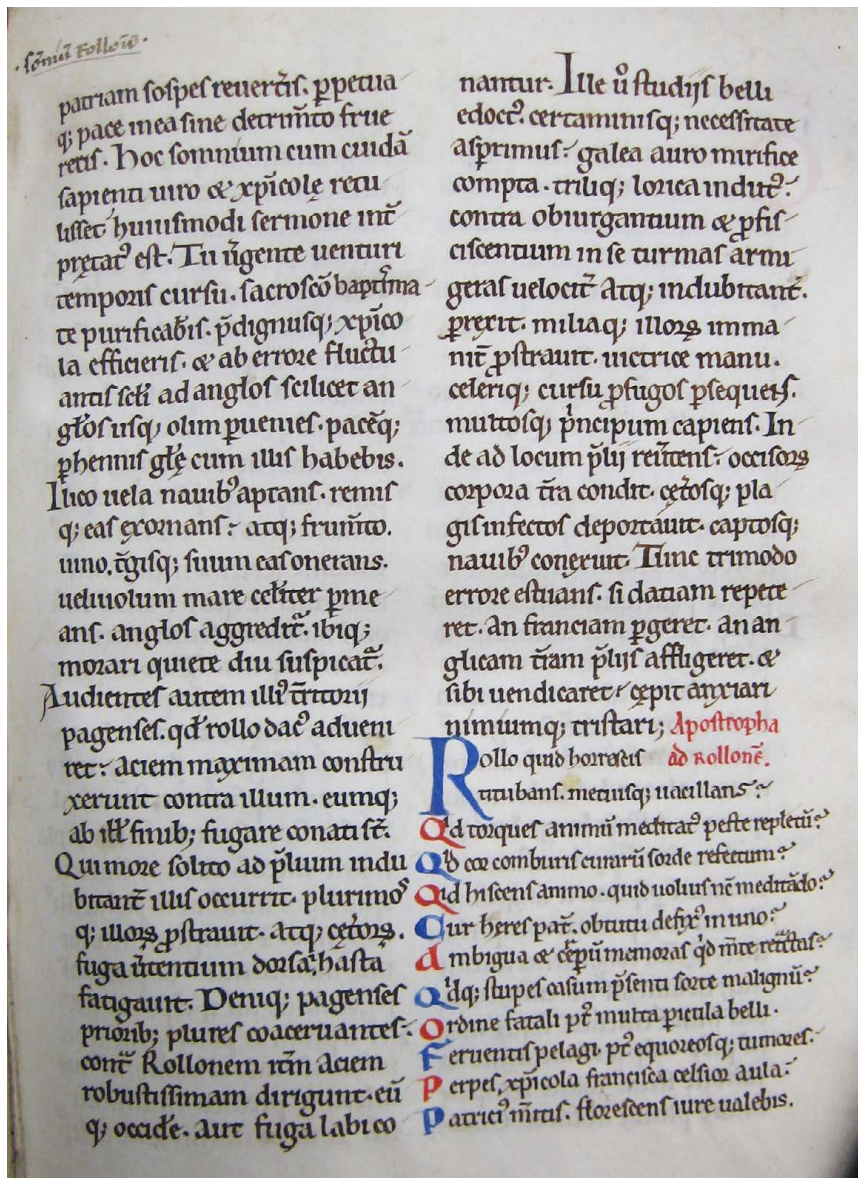 ·sōniū Rollonis·
patriam sospes reuert̄is. ꝑpetua
q; pace mea sine detrim̄to frue
retis. Hoc somnium cum cuidā
sapienti uiro & xp̄icolę retu
lisset huiusmodi sermone int̄
pretatꝰ est. Tu ūgente uenturi
temporis cursu. sacrosc̄o baptis̄ma
te purificab̄is. p̄dignusq; xp̄ico
la efficieris. & ab errore fluctu
antis scłi ad anglos scilicet an
głos usq; olim ꝑuenies. pacēq;
ꝑhennis gl̄ę cum illis habebis.
Ilico uela nauibꝰ aptans. remis
q; eas exornans. atq; frum̄to.
uino. t̄gisq; suum eas onerans.
ueliuolum mare cel̄iter ꝑme
ans. anglos aggredit̄. ibiq;
morari quiete diu suspicat̄.
Audientes autem illiꝰ t̄ritorii
pagenses. qd̄ rollo dacꝰ adueni
ret. aciem maximam constru
xerunt contra illum. eumq;
ab ill̄ finib; fugare conati st̄.
Qui more solito ad p̄lium indu
bitant̄ illis occurrit. plurimoˢ
q; illoꝝ ꝓstrauit. atq; cęt̄oꝝ.
fuga ūtentium dorsa, hasta
fatigauit. Deniq; pagenses
priorib; plures coaceruantes.
cont̄ Rollonem it̄m aciem
robustissimam dirigunt. eū
q; occid̄e. aut fuga labi co
nantur. Ille ū studiis belli
edoctꝰ. certaminisq; necessitate
aspr̄imus. galea auro mirifice
compta. triliq; lorica indutꝰ.
contra obiurgantium & ꝓfis
ciscentium in se turmas armi
geras uelocit̄ atq; indubitant̄.
ꝑrexit. miliaq; illoꝝ imma
nit̄ ꝓstrauit. uictrice manu.
celeriq; cursu ꝓfugos ꝑsequens.
multosq; p̄ncipum capiens. In
de ad locum p̄lii reūtens. occisoꝝ
corpora t̄ra condit. cęt̄osq; pla
gis infectos deportauit. captosq;
nauibꝰ conexuit. Tunc trimodo
errore estuans. si datiam repete
ret. an franciam ꝑgeret. an an
glicam t̄ram p̄liis affligeret. &
sibi uendicaret. cępit anxiari
nimiumq; tristari; Apostropha
ad Rollonē.
Rollo quid horrescis
titubans. metusq; uacillans?
Qͥd torques animū meditatꝰ peste repletū?
Qͥd cor comburis curarū sorde refectum?
Qͥd hiscens animo. quid uoluis nc̄ meditādo?
Cur hęres pat̄. obtutu defixꝰ in uno?
Ambigua & memoras qͥd m̄te
Qͥdq; stupes casum p̄senti sorte malignū?
Ordine fatali pt̄ multa pericula belli.
Feruentis pelagi. pt̄ equoreosq; tumores.
Perpes, xp̄icola francisca celsior aula.
Patriciꝰ m̄itis. florescens iure ualebis.